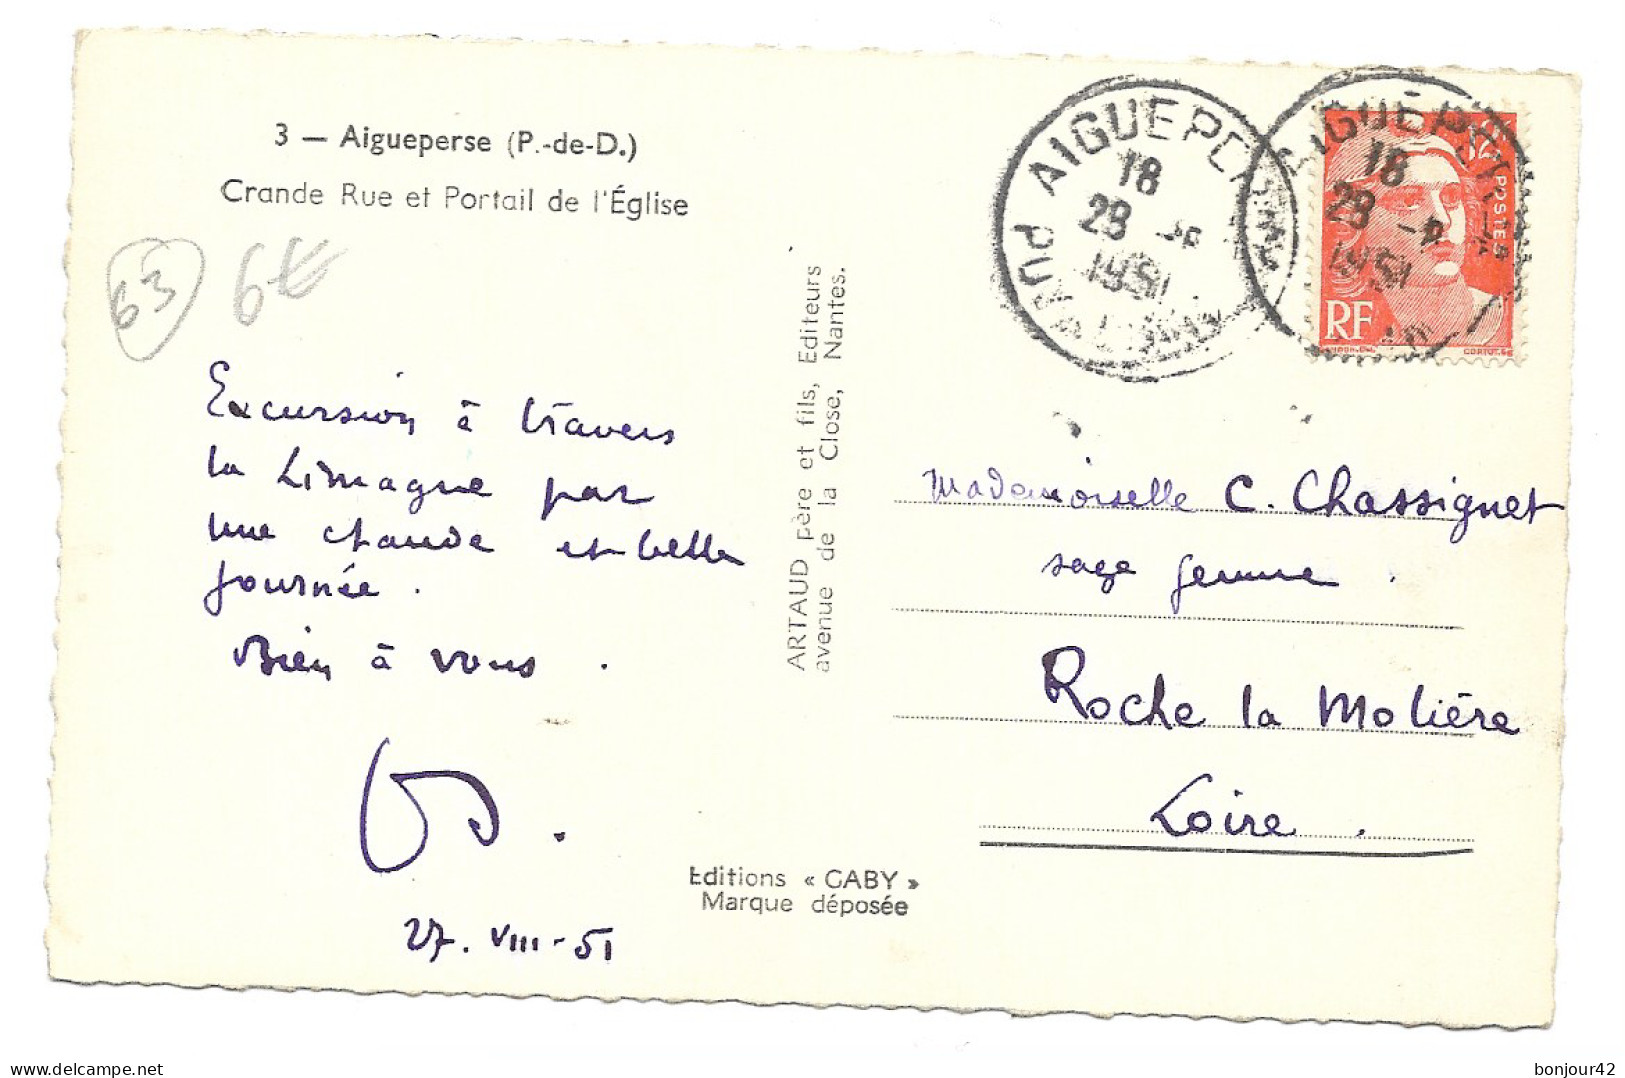 3 — Aigueperse (P.-de-D.)
Grande Rue et Portail de l'Église
63
6€
Excursion à travers
la Limagne par
une chaude et belle
journée.
Bien à vous.
27. VIII - 51
ARTAUD père et fils, Editeurs
avenue de la Close, Nantes.
Editions « GABY »
Marque déposée
AIGUEPERSE
18
28 - 8
1951
PUY DE DOME
AIGUEPERSE
18
28 - 8
1951
POSTES
RF
Mademoiselle C. Chassignet
sage femme.
Roche la Molière
Loire.
delcampe.net
bonjour42